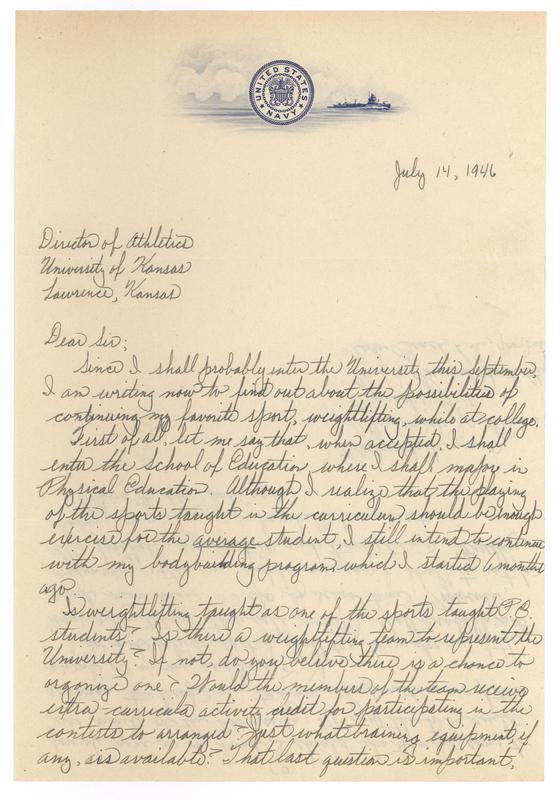 UNITED STATES NAVY
July 14, 1946
Director of Athletics
University of Kansas
Lawrence, Kansas
Dear Sir;
Since I shall probably enter the University this September,
I am writing now to find out about the possibilities of
continuing my favorite sport, weightlifting, while at college.
First of all, let me say that, when accepted, I shall
enter the School of Education, where I shall major in
Physical Education. Although I realize that the playing
of the sports taught in the curriculum should be enough
exercise for the average student, I still intend to continue
with my bodybuilding program, which I started 6 months
ago.
Is weightlifting taught as one of the sports taught P.E.
students? Is there a weightlifting team to represent the
University? If not, do you believe there is a chance to
organize one? Would the members of the team receive
extra-curricula activity credit for participating in the
contests to arranged? Just what training equipment, if
any, is available? That last question is important,